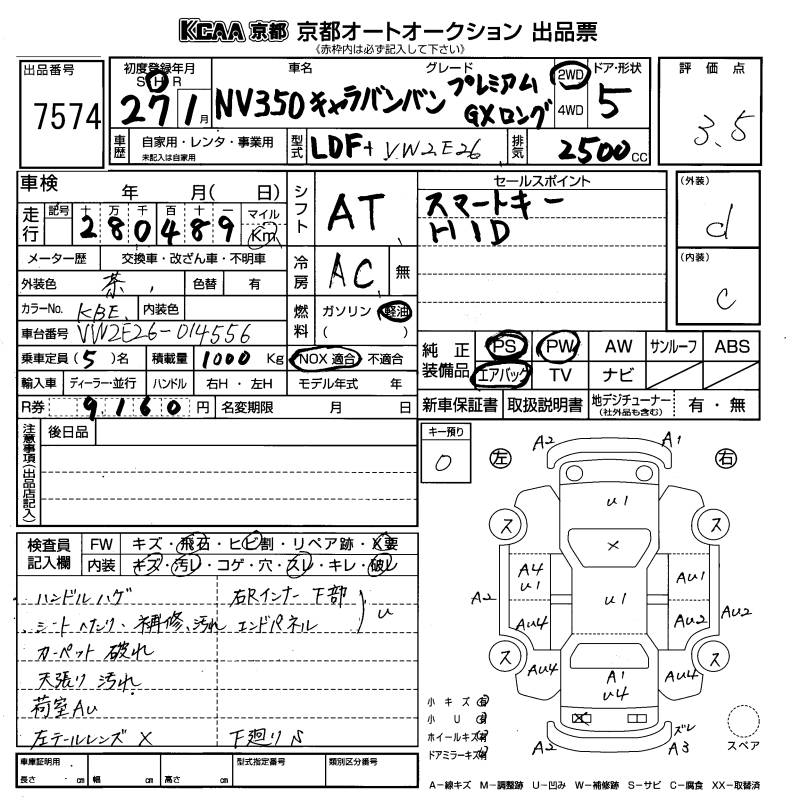 KCAA 京都 京都オートオークション 出品票
《赤枠内は必ず記入して下さい》
出品番号
7574
初度登録年月
S H R
27 1月
車名 グレード
NV350 キャラバンバン プレミアム
GXロング
2WD
4WD
ドア・形状
5
評価点
3.5
車歴 自家用・レンタ・事業用
未記入は自家用
型式 LDF+ VW2E26
排気 2500cc
車検 年 月( 日)
走行 記号 十万千百十一
280489
マイル
Km
メーター歴 交換車・改ざん車・不明車
外装色 茶 色替 有
カラーNo. KBE 内装色
車台番号 VW2E26-014556
乗車定員 (5)名 積載量 1000 Kg
NOX適合 不適合
輸入車 ディーラー・並行 ハンドル 右H・左H モデル年式 年
R券 9160円 名変期限 月 日
シフト AT
冷房 AC 無
燃料 ガソリン 軽油
( )
セールスポイント
スマートキー
HID
(外装)
d
(内装)
C
純正装備品 PS PW AW サンルーフ ABS
エアバック TV ナビ
新車保証書 取扱説明書 地デジチューナー
(社外品も含む) 有・無
注意事項(出品店記入)
後日品
キー預り
0
検査員記入欄
FW キズ・飛石・ヒビ割・リペア跡・X要
内装 キズ・汚レ・コゲ・穴・スレ・キレ・破レ
ハンドルハゲ 右Rインナー下部
シートヘタリ、補修、汚れ エンドパネル U
カーペット破れ
天張り汚れ
荷室AU
左テールレンズX 下廻りS
左 右
A2 A1
U1
ス ス
X
A4
U1
U1
AU1
A2
AU4
AU2
AU2
ス ス
AU4
A1
U4
AU4
X
A2
ズレ
A3
小キズ有
小U有
ホイールキズ有
ドアミラーキズ有
スペア
車庫証明用
長さ cm 幅 cm 高さ cm
型式指定番号
類別区分番号
A−線キズ M−調整跡 U−凹み W−補修跡 S−サビ C−腐食 XX−取替済